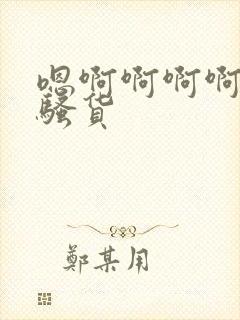 嗯啊啊啊啊
骚货
鄭某用